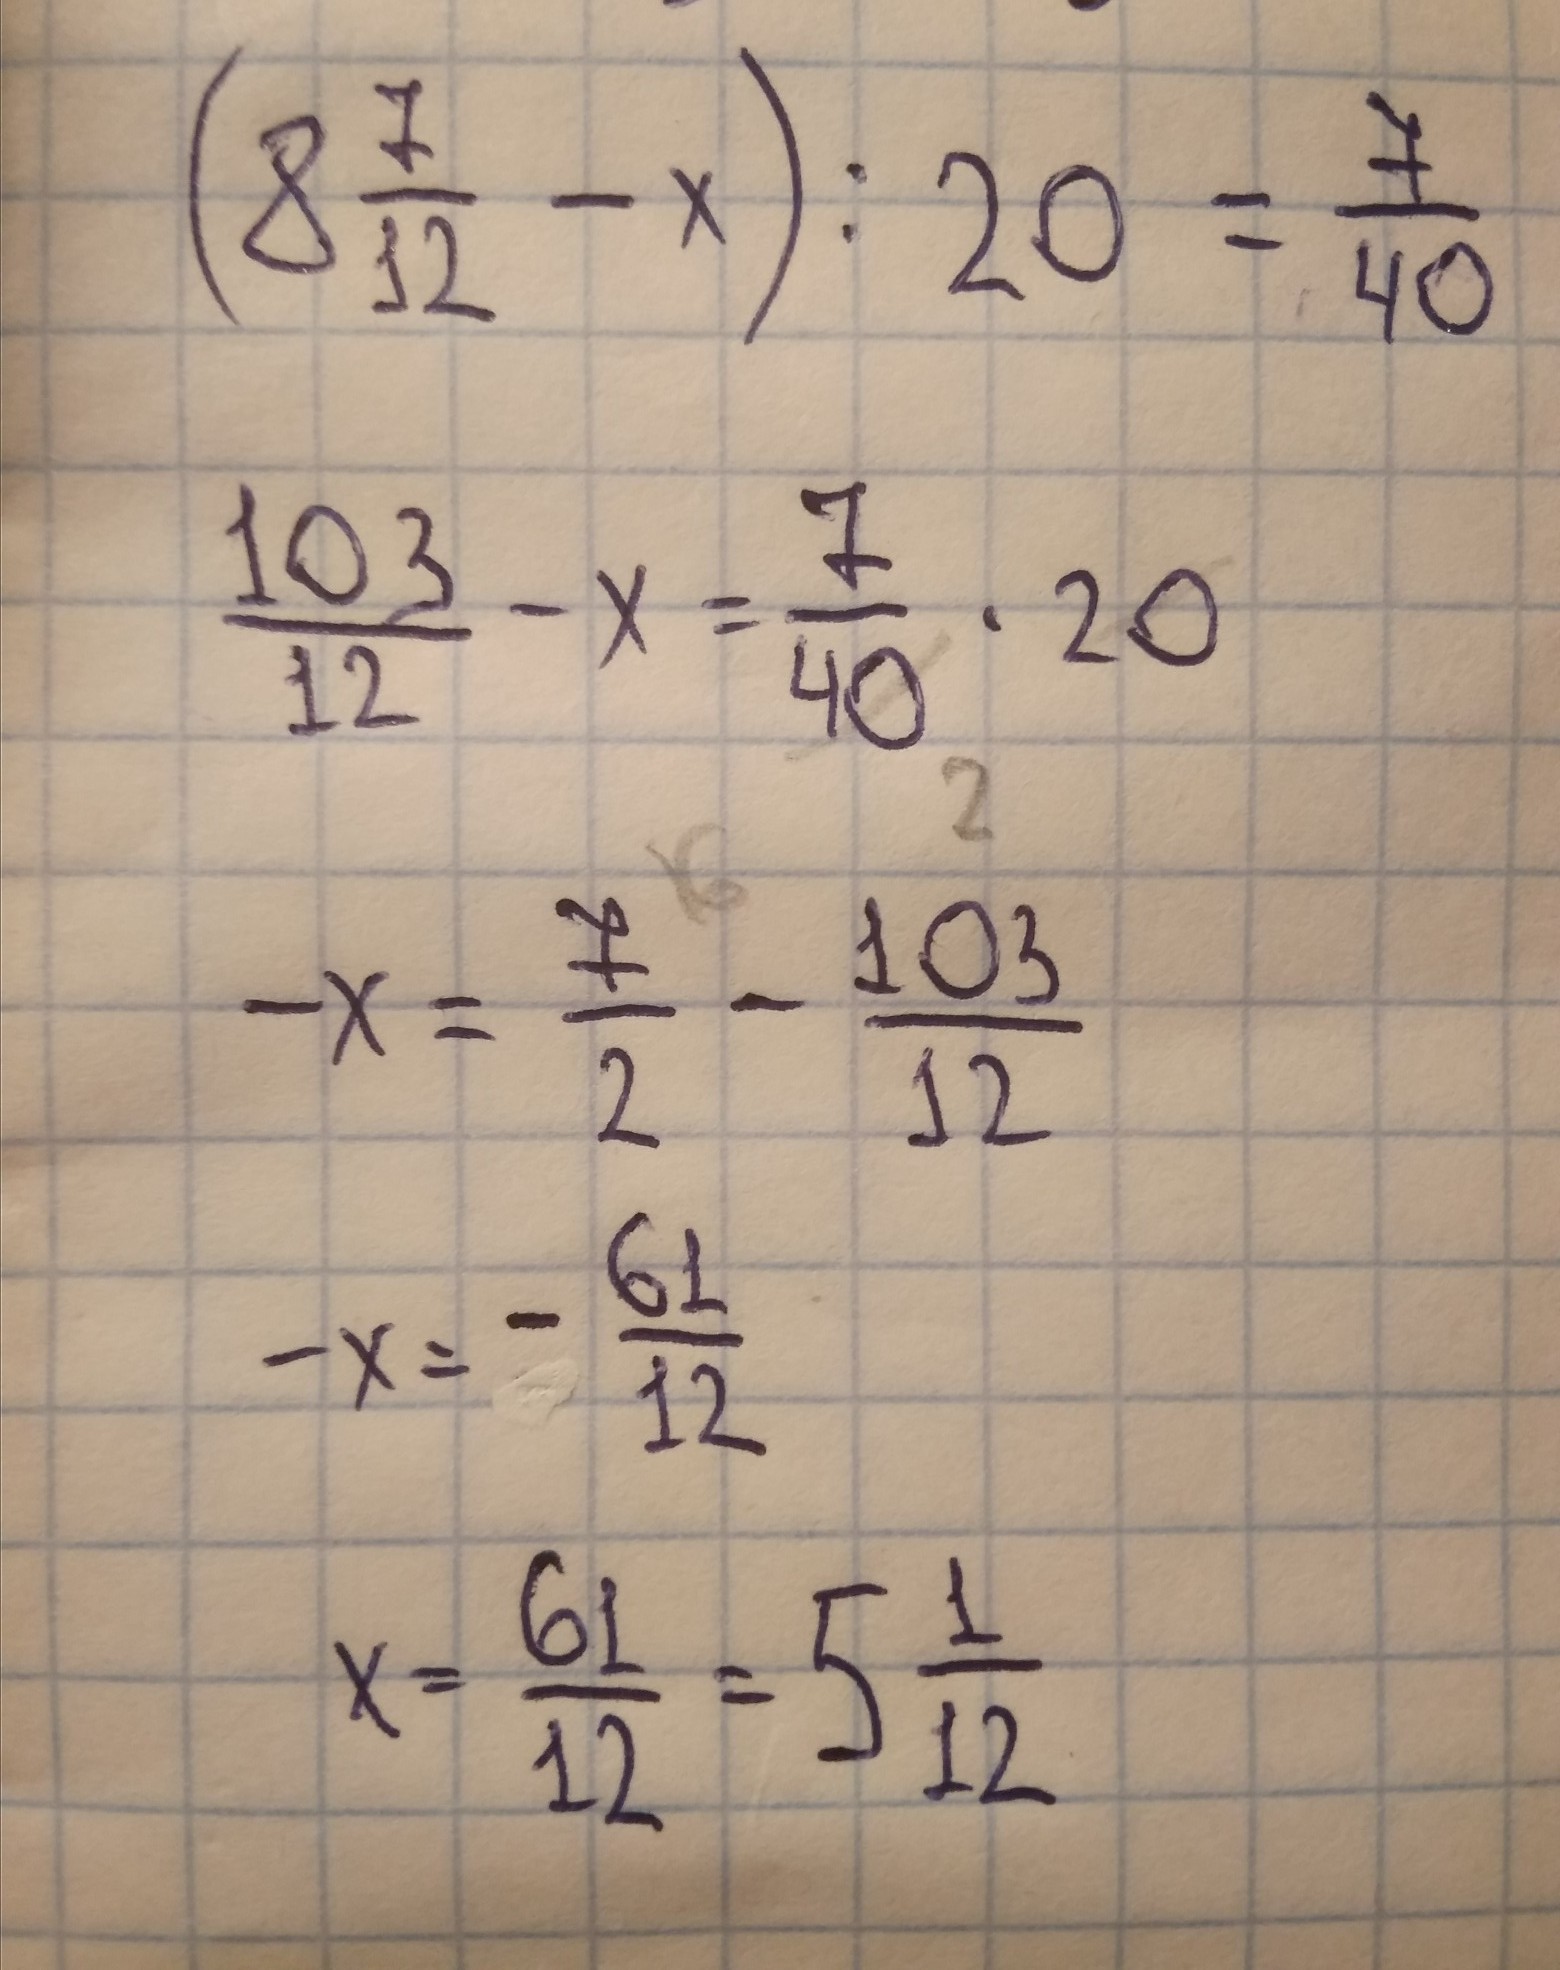 (8 7/12 - x) : 20 = 7/40
103/12 - x = 7/40 · 20
2
6
-x = 7/2 - 103/12
-x = - 61/12
x = 61/12 = 5 1/12